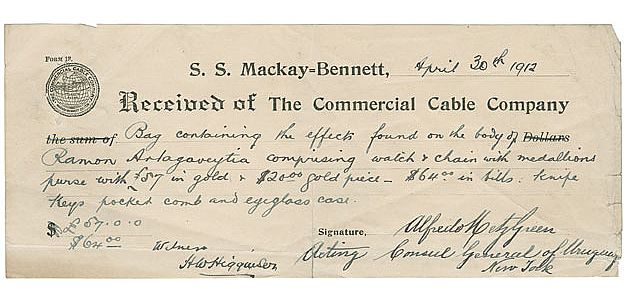 FORM 1P.
S. S. Mackay=Bennett, April 30th 1912
THE COMMERCIAL CABLE COMPANY
Received of The Commercial Cable Company
the sum of Bag containing the effects found on the body of Dollars
Ramon Artagaveytia comprising watch & chain with medallions
purse with £57 in gold & $20.00 gold piece – $64.00 in bills. Knife
Keys pocket comb and eyeglass case.
$ £57.0.0
Signature, Alfredo Metz Green
$64.00 Witness Acting Consul General of Uruguay
H W Higginson New York